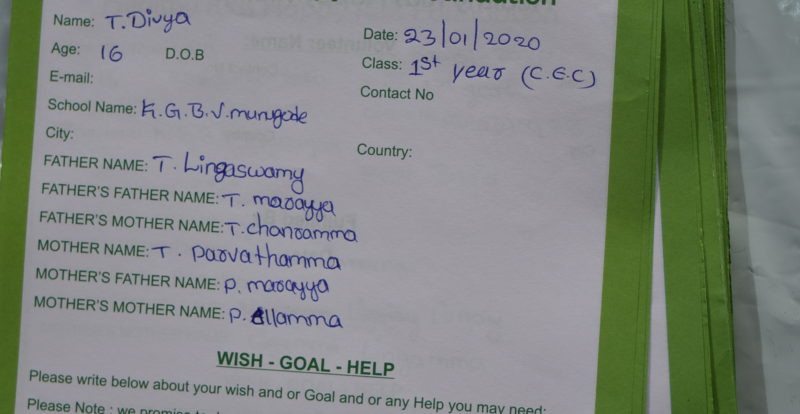 Name: T. Divya
Date: 23/01/2020
Age: 16 D.O.B
Class: 1st year (C.E.C)
E-mail:
Contact No
School Name: K.G.B.V. murugode
City:
Country:
FATHER NAME: T. Lingaswamy
FATHER'S FATHER NAME: T. marayya
FATHER'S MOTHER NAME: T. chandramma
MOTHER NAME: T. Parvathamma
MOTHER'S FATHER NAME: P. marayya
MOTHER'S MOTHER NAME: P. Ellamma
WISH - GOAL - HELP
Please write below about your wish and or Goal and or any Help you may need:
Please Note : we